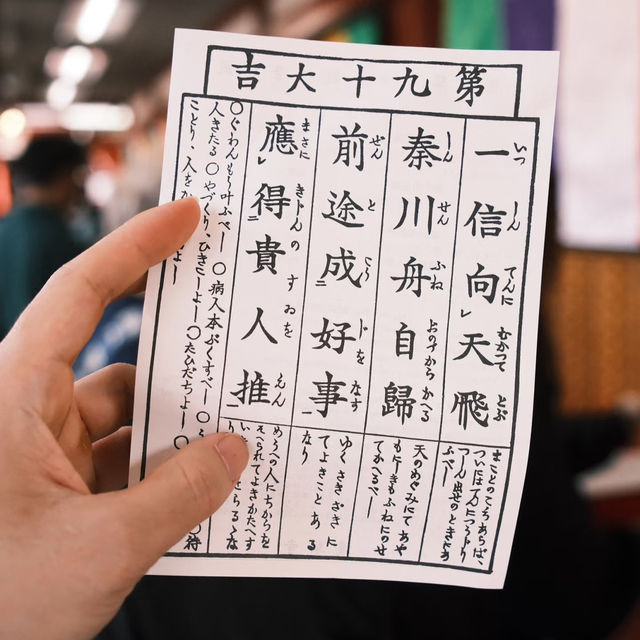 第九十大吉
一信向天飛
いつしんてんにむかつてとぶ
秦川舟自歸
しんせんふねおのずからかへる
前途成好事
ぜんとこうじをなす
應得貴人推
まさにきじんのすゐをえん
まことのこころあらば、
ついには
出世のときにあ
ふべし
天のめぐみにてあや
もにしきもふねにのせ
てかへるべし
ゆくさきざきに
てよきことある
なり
めうへの人にちからを
そへられてよきかたへす
○ぐわんもう叶ふべし ○病人本ぷくすべし ○
人きたる ○やづくり、ひきこしよし ○たびだちよし ○
ことり、人をか